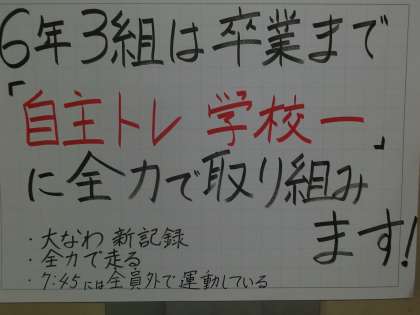 6年3組は卒業まで
「自主トレ 学校一」
に全力で取り組み
ます!
・大なわ 新記録
・全力で走る
・7:45には全員外で運動している